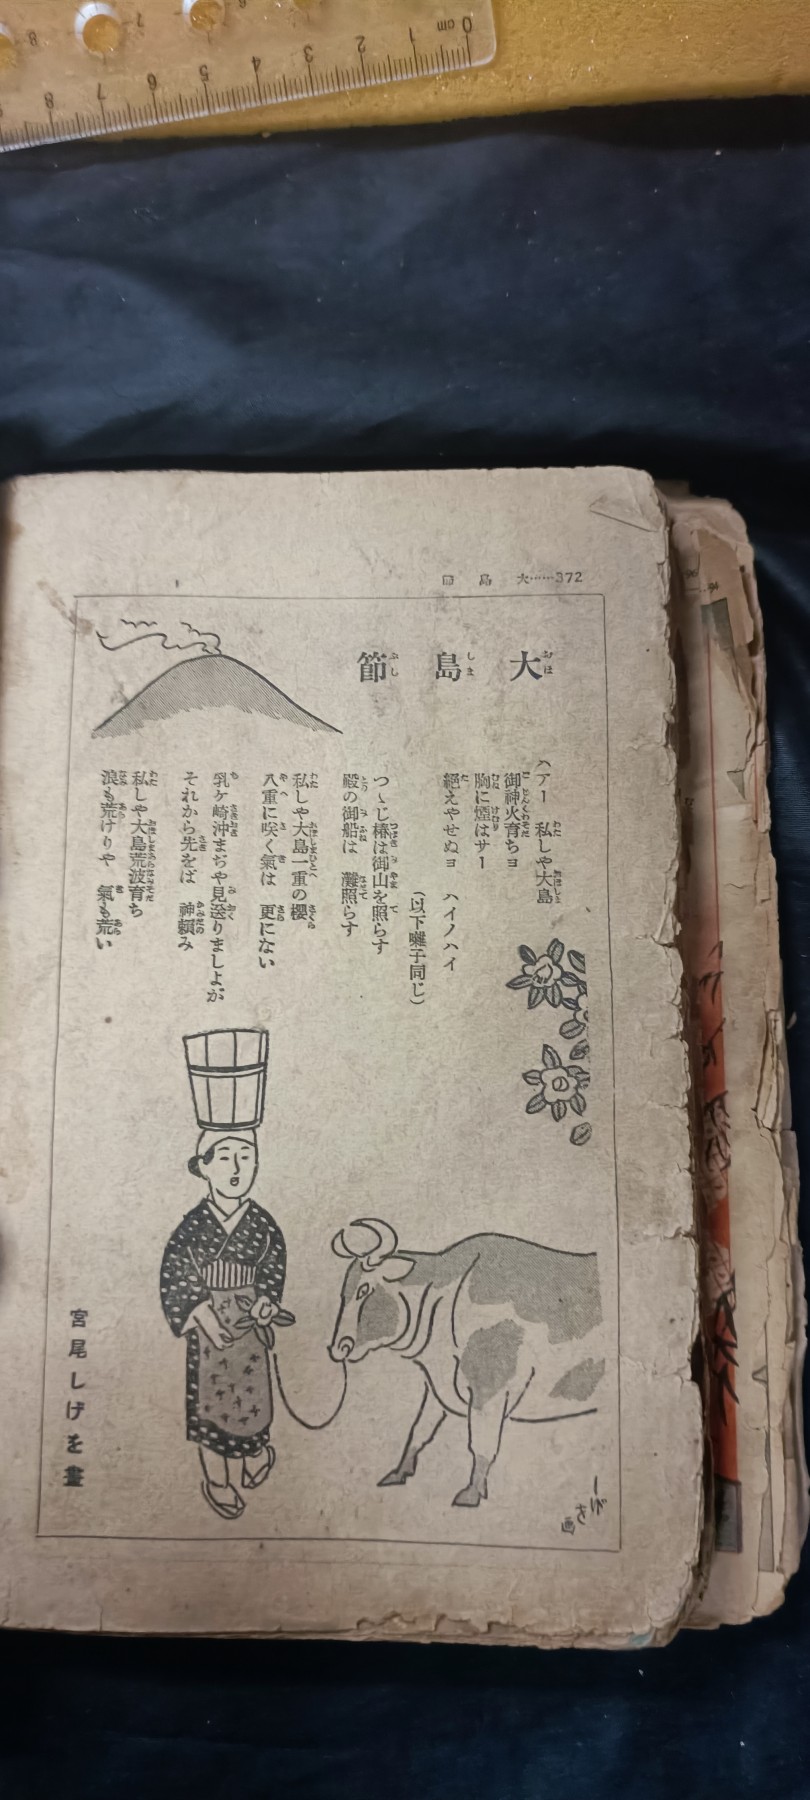 372……大島節
大島節
ハアー 私しや大島
御神火育ちヨ
胸に煙はサー
絕えやせぬヨ ハイノハイ
(以下囃子同じ)
つゝじ椿は御山を照らす
殿の御船は 灘照らす
私しや大島一重の櫻
八重に咲く氣は 更にない
乳ケ崎沖まぢや見送りましよが
それから先をば 神賴み
私しや大島荒波育ち
浪も荒けりや 氣も荒い
宮尾しげを畫
しげを画
0 cm 1 2 3 4 5 6 7 8